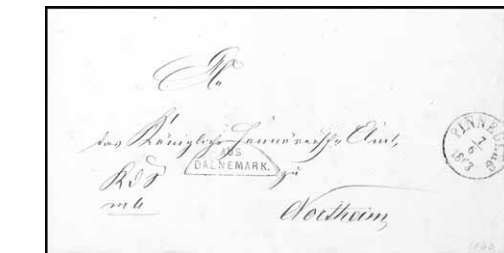 An
das Königliche Hannoversche Amt
AUS
DAENEMARK.
zu
KdS
Northeim
PINNEBERG
7
6